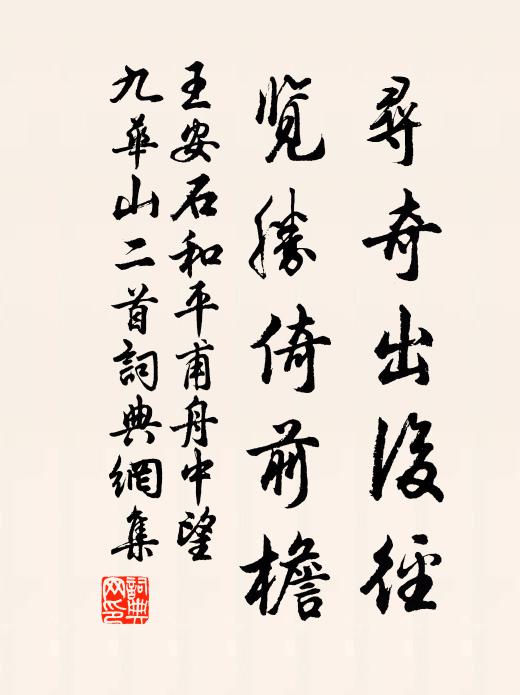 尋奇出後徑
覽勝倚前檐
王安石和平甫舟中望
九華山二首詞典網集
詞典網印